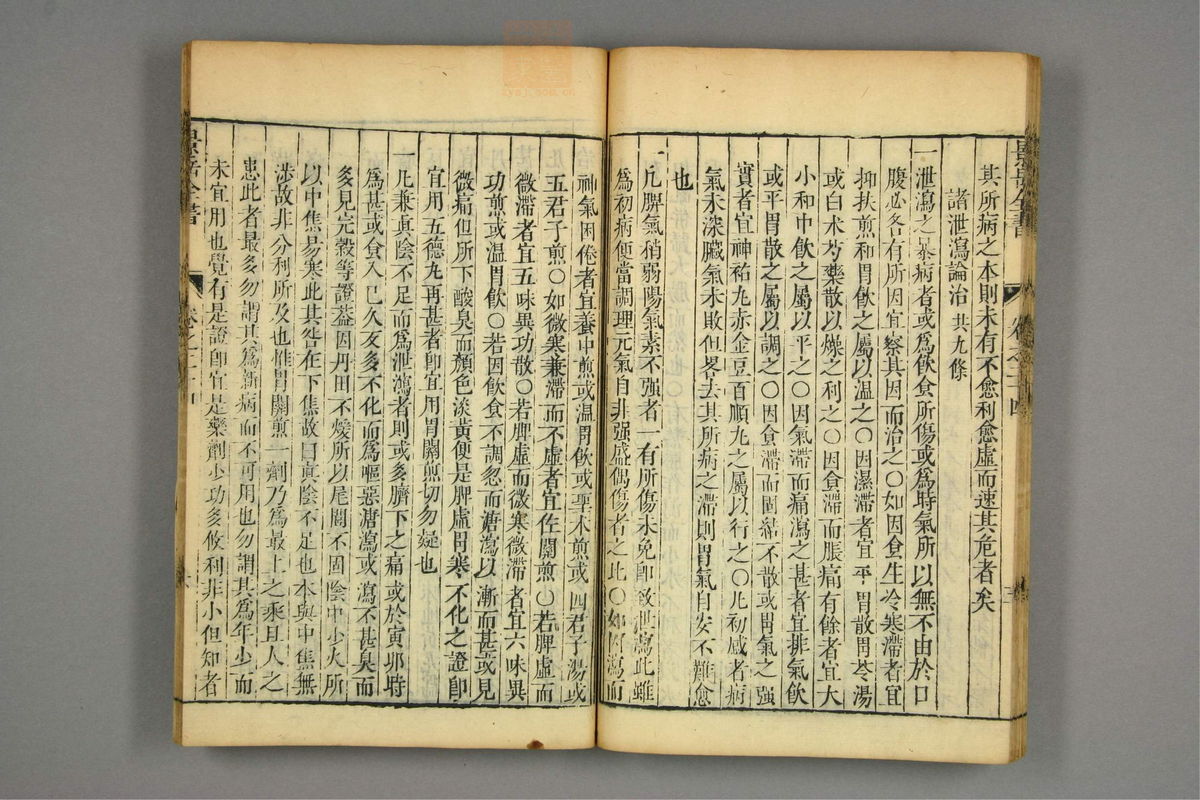 其所病之本則未有不愈利愈虛而速其危者矣
諸泄瀉論治 共九條
一泄瀉之暴病者或爲飲食所傷或爲時氣所以無不由於口
腹必各有所因宜察其因而治之○如因食生冷寒滯者宜
抑扶煎和胃飲之屬以温之○因濕滯者宜平胃散胃苓湯
或白术芍藥散以燥之利之○因食滯而脹痛有餘者宜大
小和中飲之屬以平之○因氣滯而痛瀉之甚者宜排氣飲
或平胃散之屬以調之○因食滯而固結不散或胃氣之强
實者宜神祐丸赤金豆百順丸之屬以行之○凡初感者病
氣未深臟氣未敗但畧去其所病之滯則胃氣自安不難愈
也
一凡脾氣稍弱陽氣素不强者一有所傷未免即致泄瀉此雖
爲初病便當調理元氣自非强盛偶傷者之比○如因瀉而
神氣困倦者宜養中煎或温胃飲或聖术煎或四君子湯或
五君子煎○如微寒兼滯而不虛者宜佐關煎○若脾虛而
微滯者宜五味異功散○若脾虛而微寒微滯者宜六味異
功煎或温胃飲○若因飲食不調忽而溏瀉以漸而甚或見
微痛但所下酸臭而顏色淡黃便是脾虛胃寒不化之證即
宜用五德丸再甚者即宜用胃關煎切勿疑也
一凡兼真陰不足而爲泄瀉者則或多臍下之痛或於寅卯時
爲甚或食入已久反多不化而爲嘔惡溏瀉或瀉不甚臭而
多見完穀等證蓋因丹田不煖所以尾閭不固陰中少火所
以中焦易寒此其咎在下焦故曰真陰不足也本與中焦無
涉故非分利所及也惟胃關煎一劑乃爲最上之乘且人之
患此者最多勿謂其爲新病而不可用也勿謂其爲年少而
未宜用也覺有是證即宜是藥劑少功多攸利非小但知者
景岳全書
卷之二十四